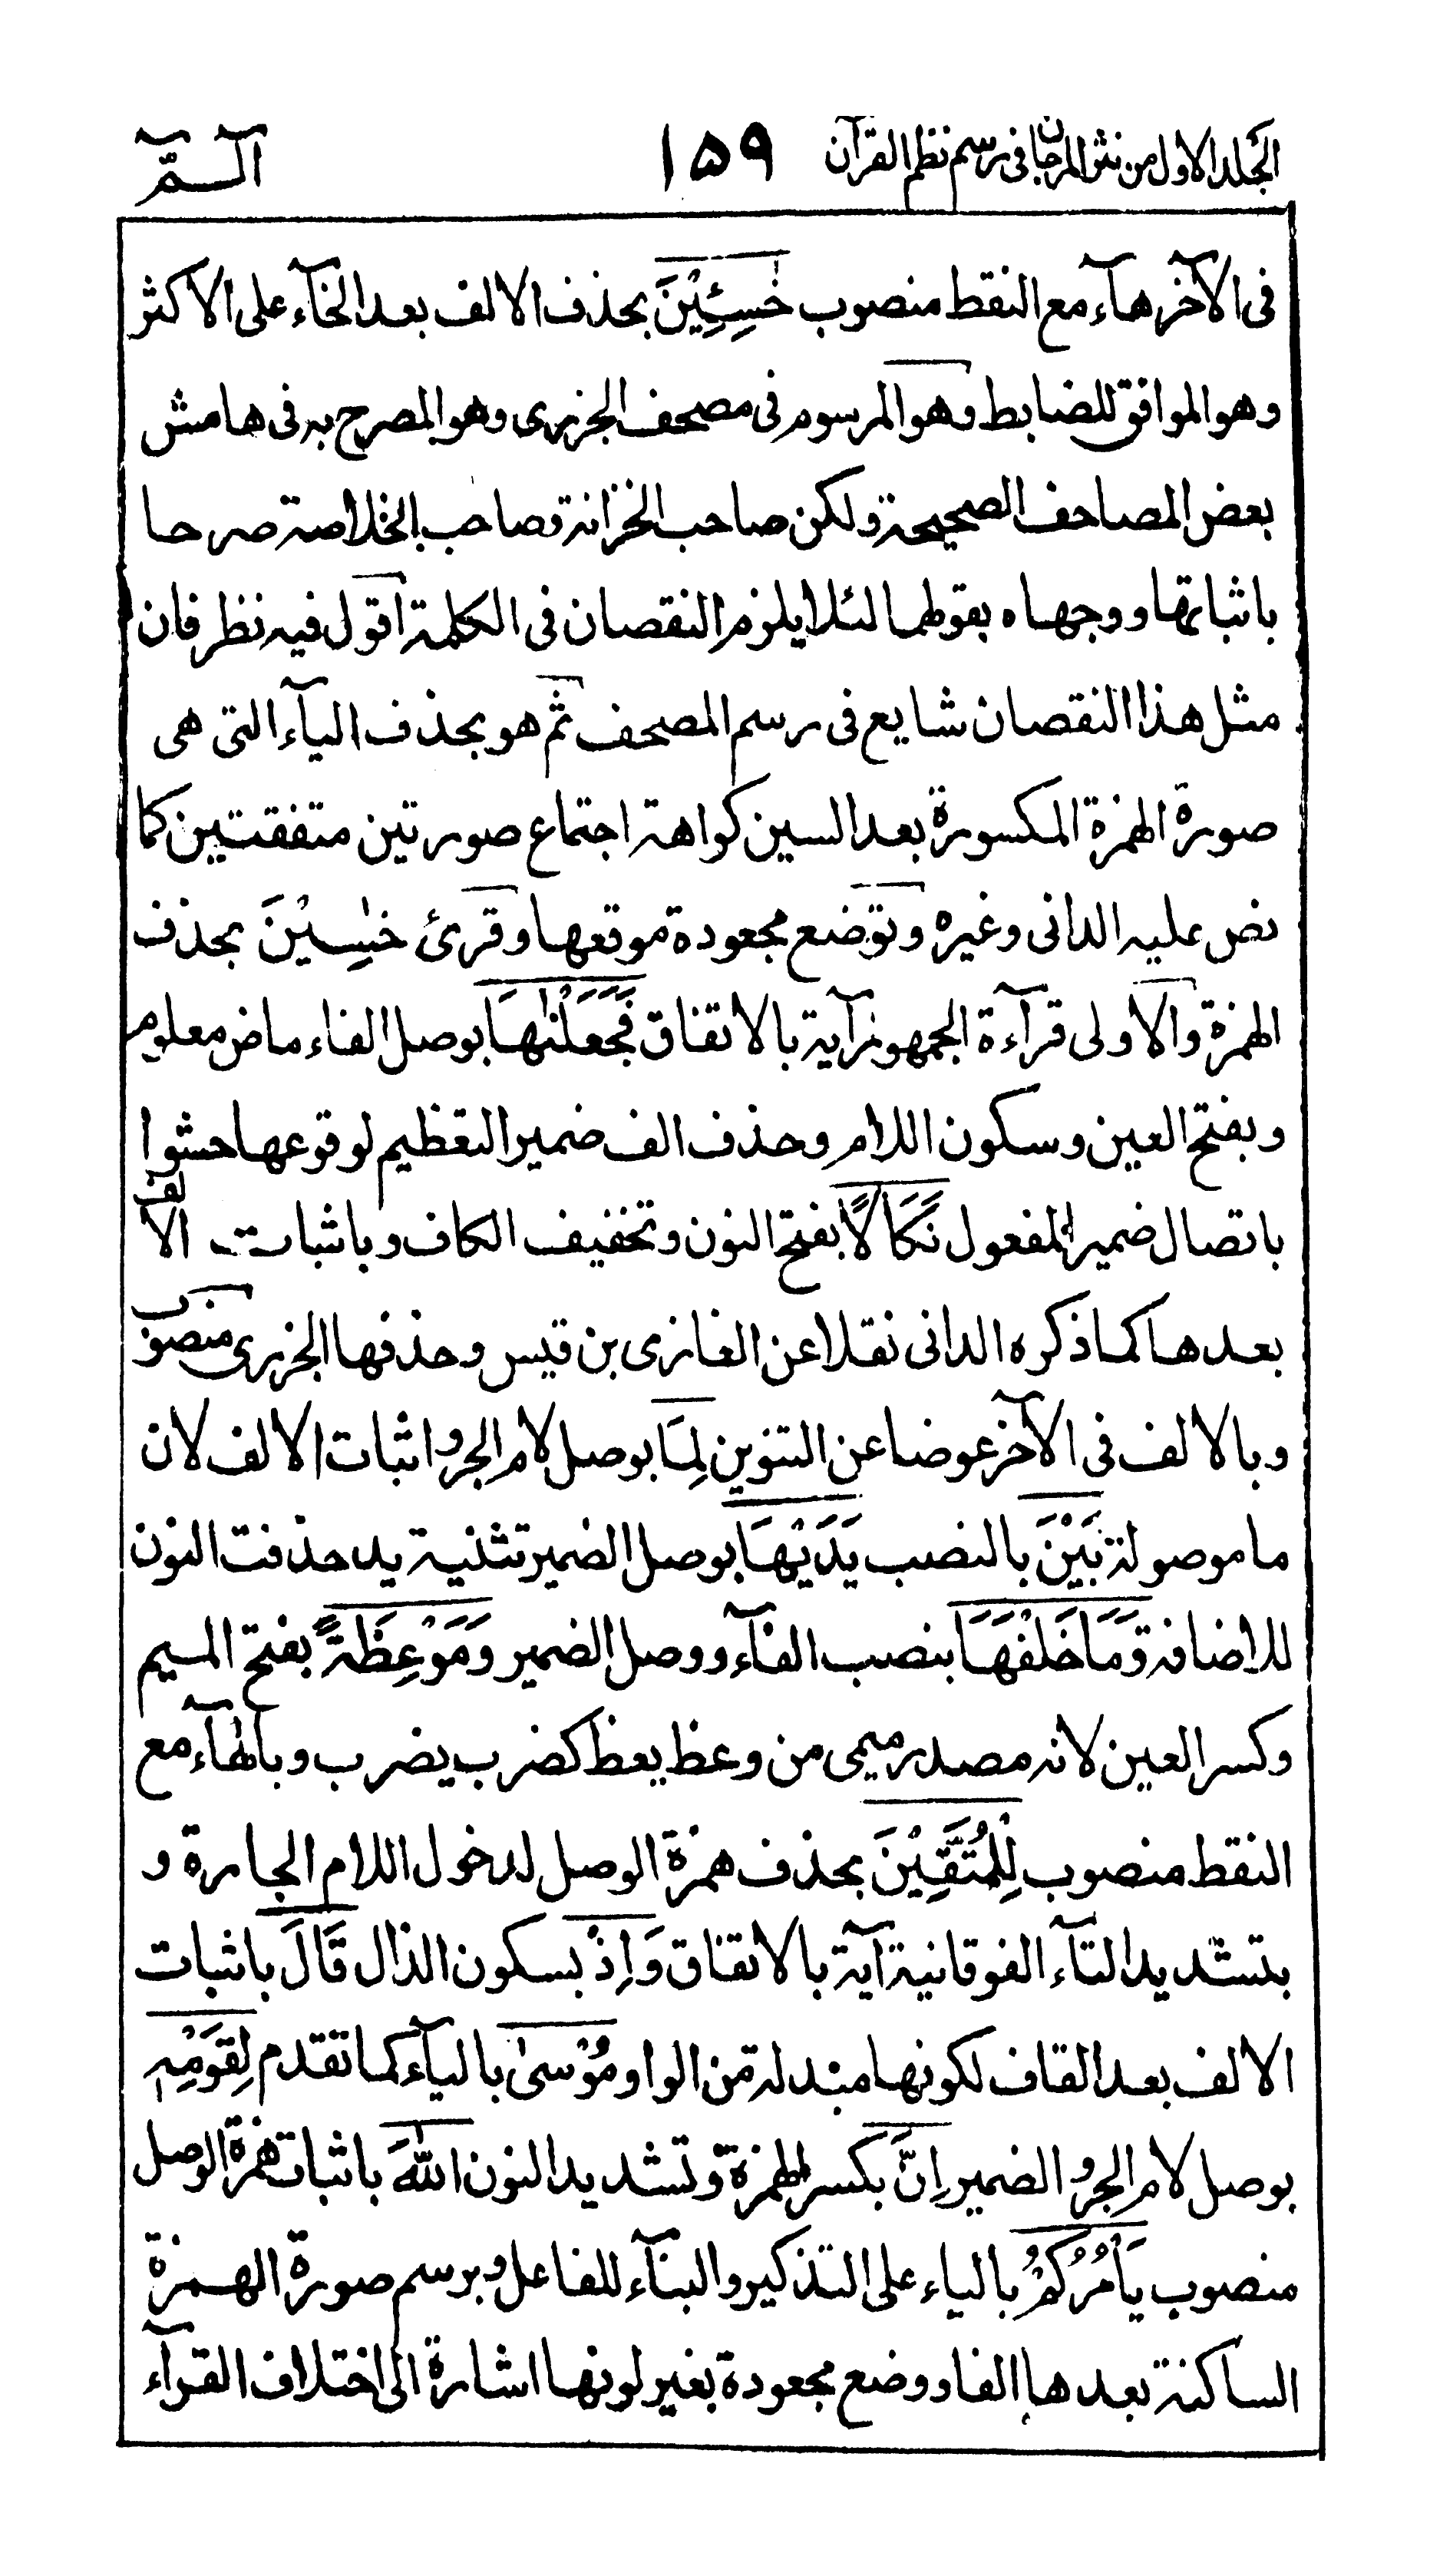 الجلد الاول من نثر المرجان فى رسم نظم القرآن ١٥٩ آلـــمّٓ
فى الآخر هآء مع النقط منصوب خٰسِئِيْنَ بحذف الالف بعد الخآء على الاكثر
وهو الموافق للضابط وهو المرسوم فى مصحف الجزرى وهو المصرح به فى هامش
بعض المصاحف الصحيحة ولكن صاحب الخزانة وصاحب الخلاصة صرحا
باثباتها ووجهاه بقولهما لئلا يلزم النقصان فى الكلمة اقول فيه نظر فان
مثل هذا النقصان شايع فى رسم المصحف ثم هو بحذف اليآء التى هى
صورة الهمزة المكسورة بعد السين كراهة اجتماع صورتين متفقتين كما
نص عليه الدانى وغيره وتوضع مجعودة موقعها وقرئ خٰسِيْنَ بحذف
الهمزة والاولى قرآءة الجمهور آية بالاتفاق فَجَعَلْنٰهَا بوصل الفاء ماض معلوم
وبفتح العين وسكون اللام وحذف الف ضمير التعظيم لوقوعها حشوا
باتصال ضمير المفعول نَكَالًا بفتح النون وتخفيف الكاف وباثبات الالف
بعدها كما ذكره الدانى نقلا عن الغازى بن قيس وحذفها الجزرى منصوب
وبالالف فى الآخر عوضا عن التنوين لِمَا بوصل لام الجر واثبات الالف لان
ما موصولة بَيْنَ بالنصب يَدَيْهَا بوصل الضمير تثنية يد حذفت النون
للاضافة وَمَا خَلْفَهَا بنصب الفآء ووصل الضمير وَمَوْعِظَةً بفتح الميم
وكسر العين لانه مصدر ميمى من وعظ يعظ كضرب يضرب وبالهآء مع
النقط منصوب لِلْمُتَّقِيْنَ بحذف همزة الوصل لدخول اللام الجارة و
بتشديد التآء الفوقانية آية بالاتفاق وَاِذْ بسكون الذال قَالَ باثبات
الالف بعد القاف لكونها مبدلة من الواو مُوْسىٰ باليآء كما تقدم لِقَوْمِهٖ
بوصل لام الجر و الضمير اِنَّ بكسر الهمزة وتشديد النون اللّٰهَ باثبات همزة الوصل
منصوب يَأْمُرُكُمْ بالياء على التذكير والبنآء للفاعل وبرسم صورة الهمزة
الساكنة بعدها الفا ووضع مجعودة بغير لونها اشارة الى اختلاف القرآء